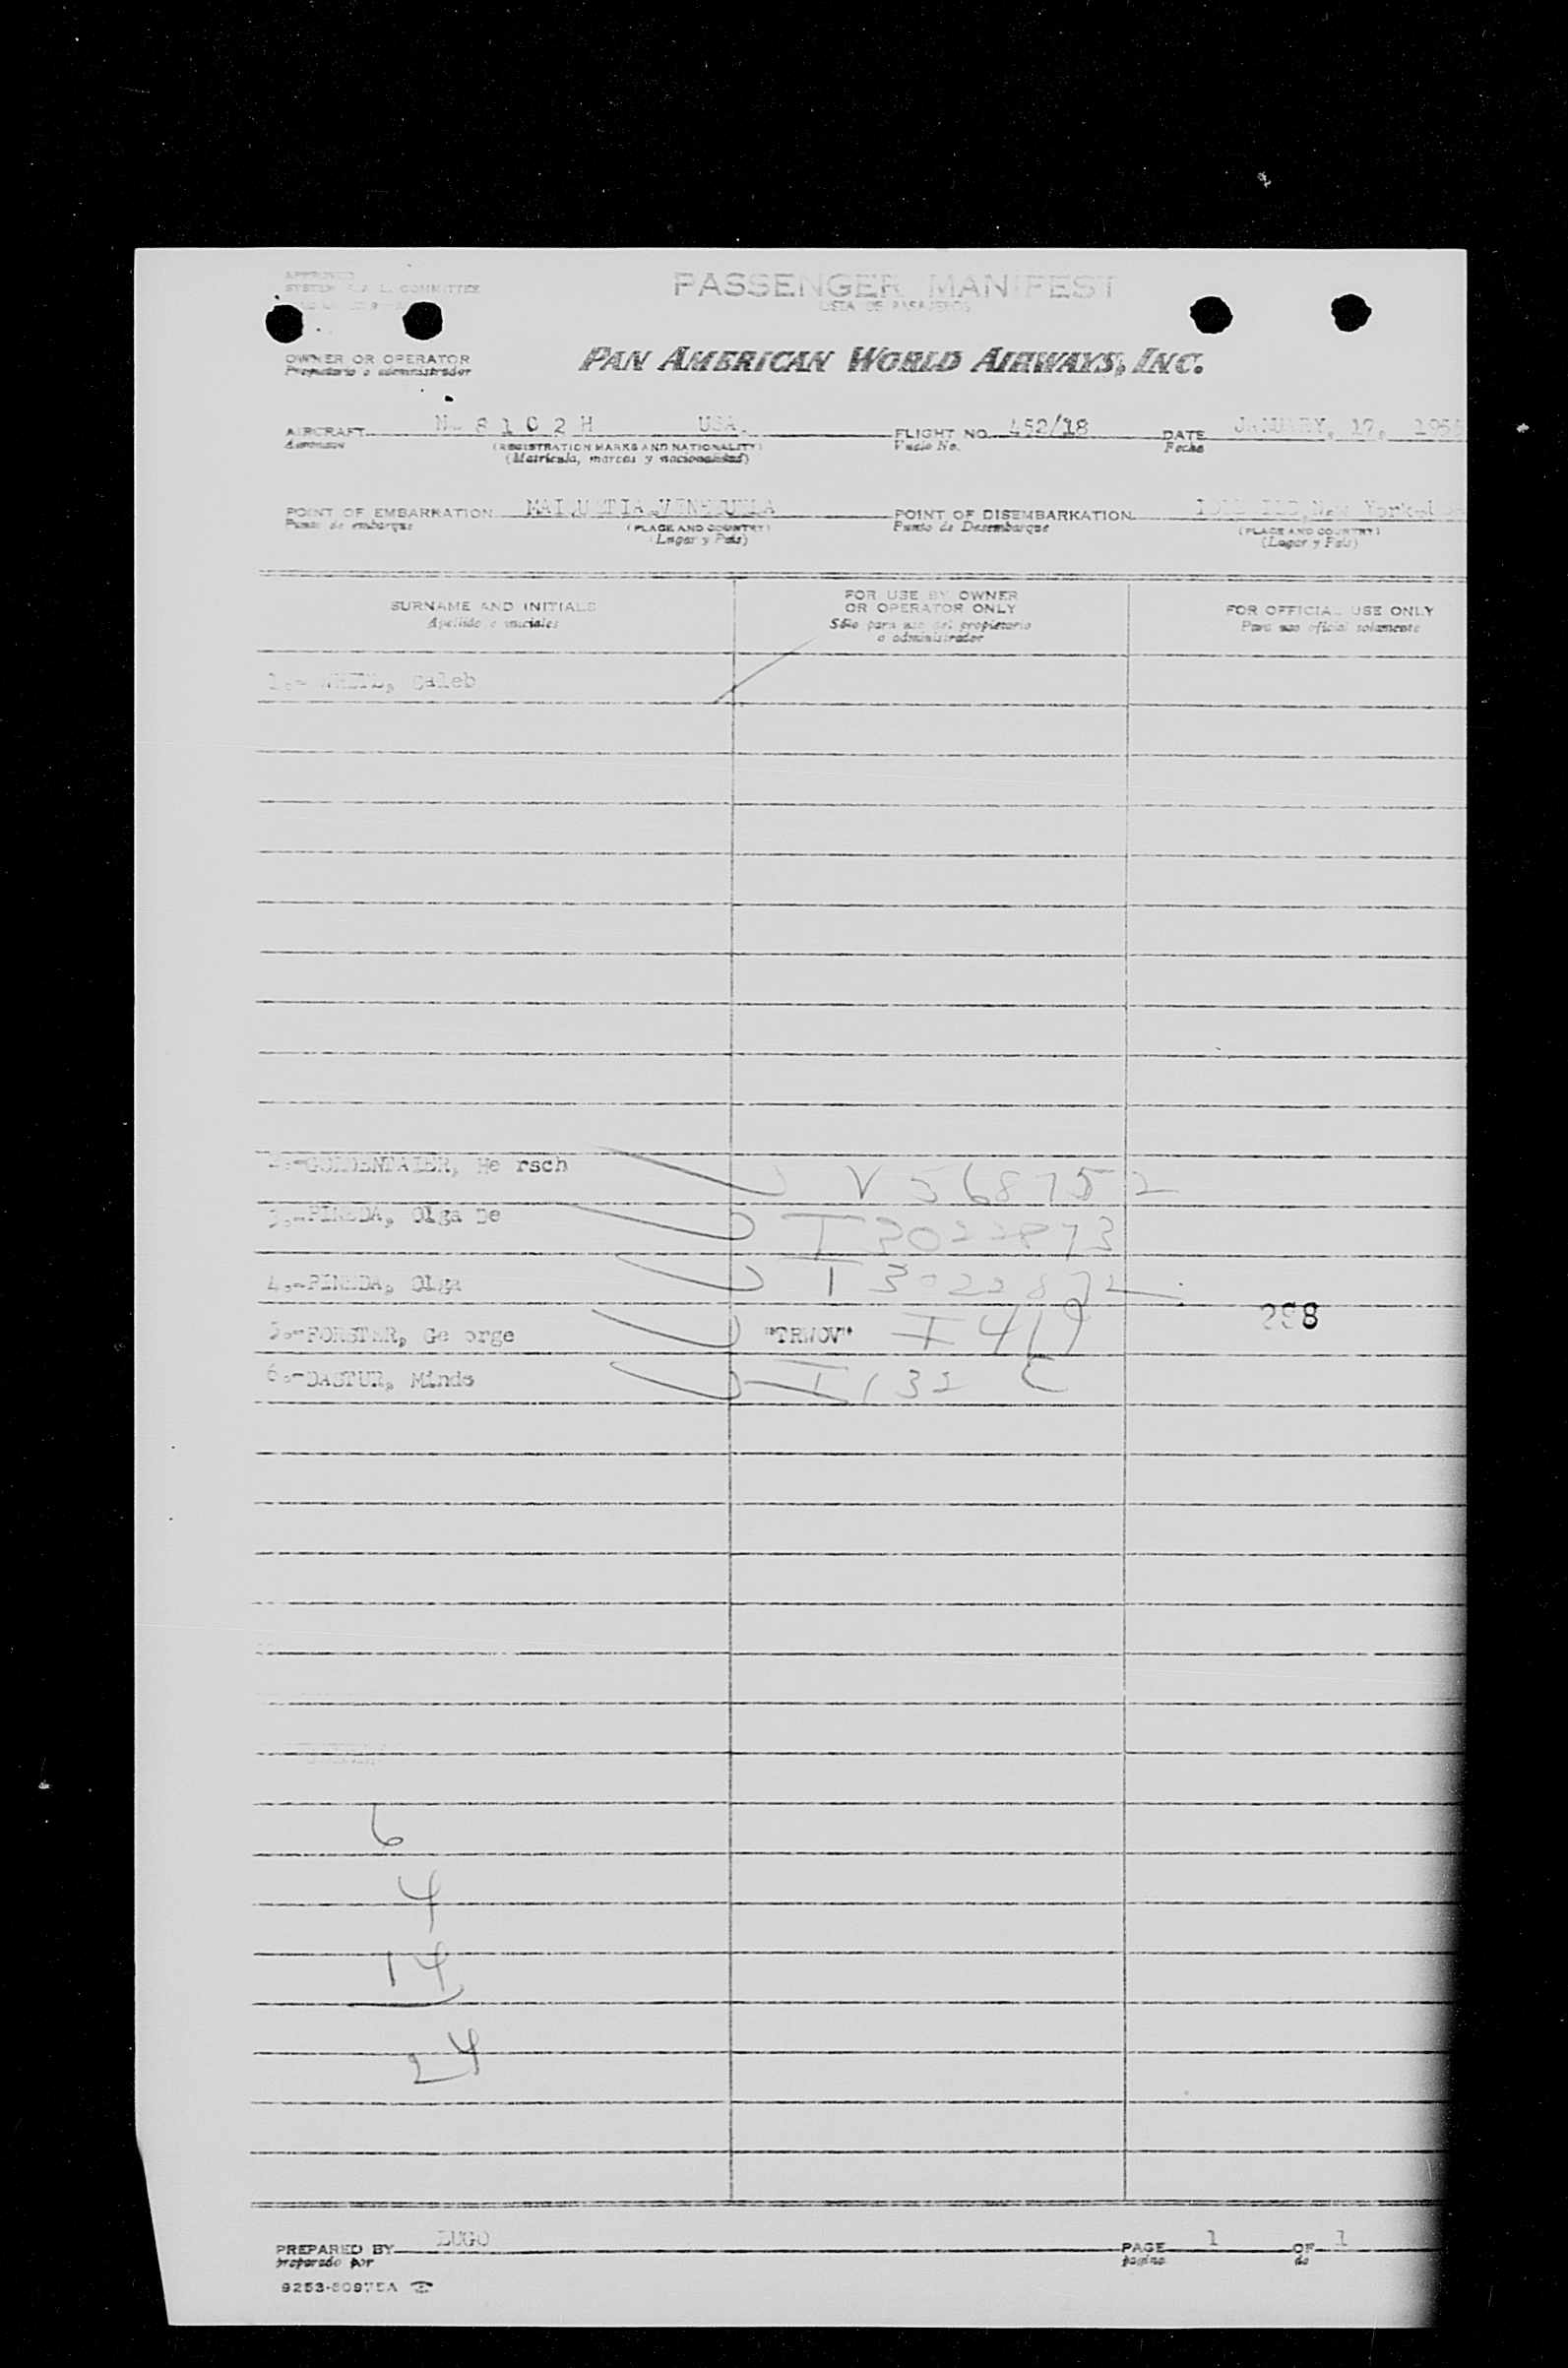 APPROVED
SYSTEM COMMITTEE
PASSENGER MANIFEST
LISTA DE PASAJEROS
OWNER OR OPERATOR
Propietario o administrador
PAN AMERICAN WORLD AIRWAYS, INC.
AIRCRAFT 8 1 0 2 H USA. FLIGHT NO. 452/18 DATE JANUARY, 17,
Aeronave (REGISTRATION MARKS AND NATIONALITY) Vuelo No. Fecha
(Matrícula, marcas y nacionalidad)
POINT OF EMBARKATION MAIQUETIA, VENEZUELA POINT OF DISEMBARKATION New York
Punto de embarque (PLACE AND COUNTRY) Punto de Desembarque (PLACE AND COUNTRY)
(Lugar y País) (Lugar y País)
SURNAME AND INITIALS FOR USE BY OWNER OR OPERATOR ONLY FOR OFFICIAL USE ONLY
Apellido e iniciales Sólo para uso del propietario o administrador Para uso oficial solamente
1.- WHITE, Caleb
Hersch V 568752
3.-PINEDA, Olga De I 3022873
4.-PINEDA, Olga I 3022872
298
5.-FORSTER, George "TRWOV" I 419
6.-DASTUR, I 132
6
4
14
24
PREPARED BY LUGO PAGE 1 OF 1
preparado por pagina de